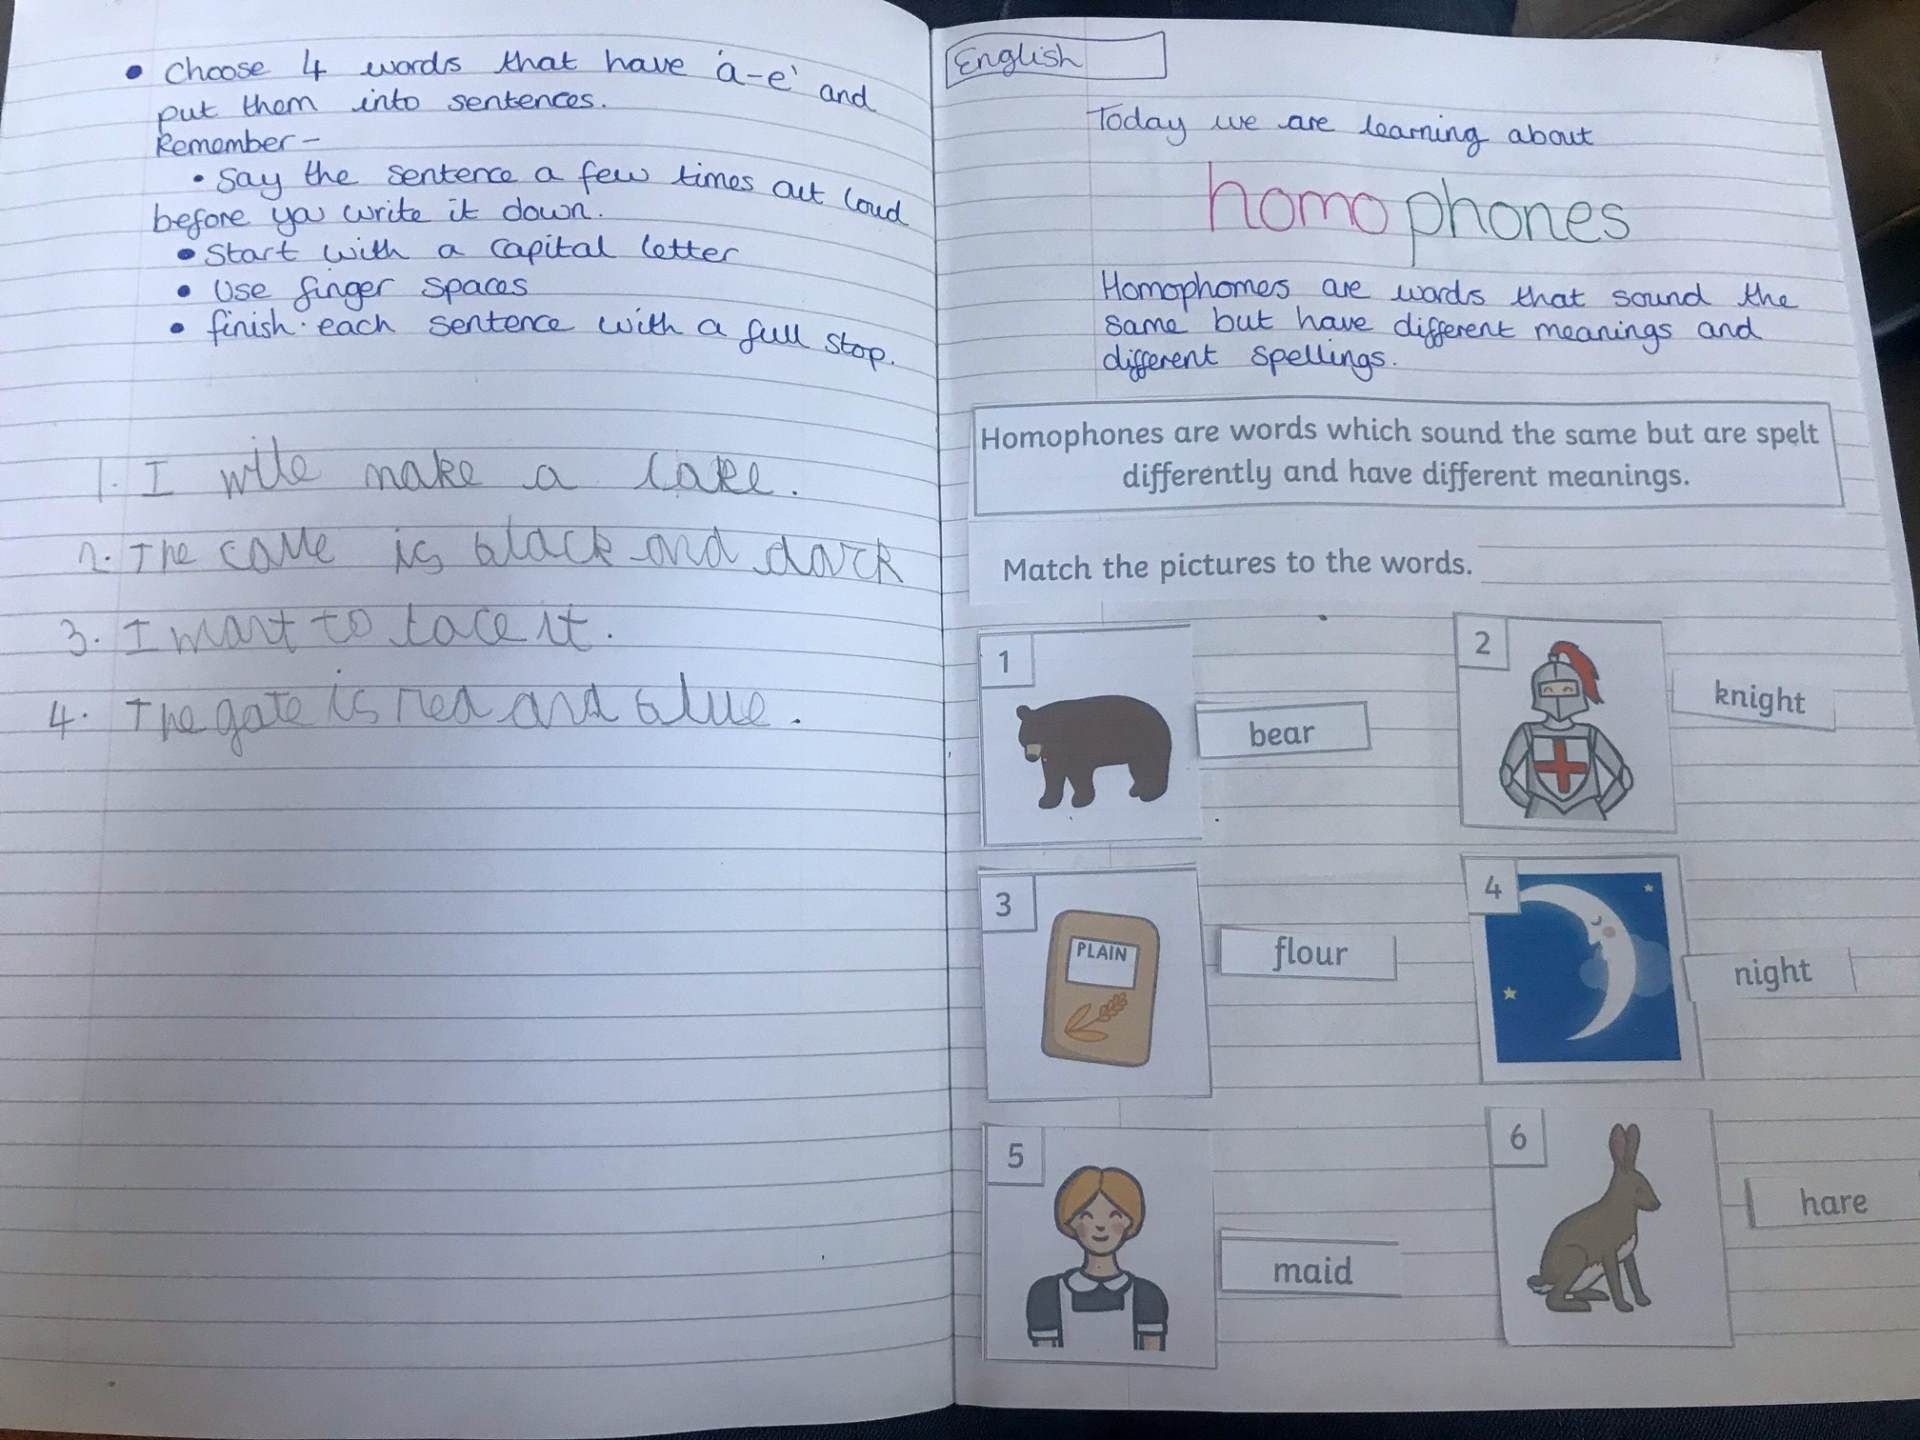 • Choose 4 words that have 'a-e' and
put them into sentences.
Remember -
• Say the sentence a few times out loud
before you write it down.
• Start with a capital letter
• Use finger spaces
• finish each sentence with a full stop.
1. I make a cake.
2. The is black and darck
3. I want to tace it.
4. The gate is red and blue.
English
Today we are learning about
homophones
Homophomes are words that sound the
same but have different meanings and
different spellings.
Homophones are words which sound the same but are spelt
differently and have different meanings.
Match the pictures to the words.
1
bear
2
knight
3
PLAIN
flour
4
night
5
maid
6
hare